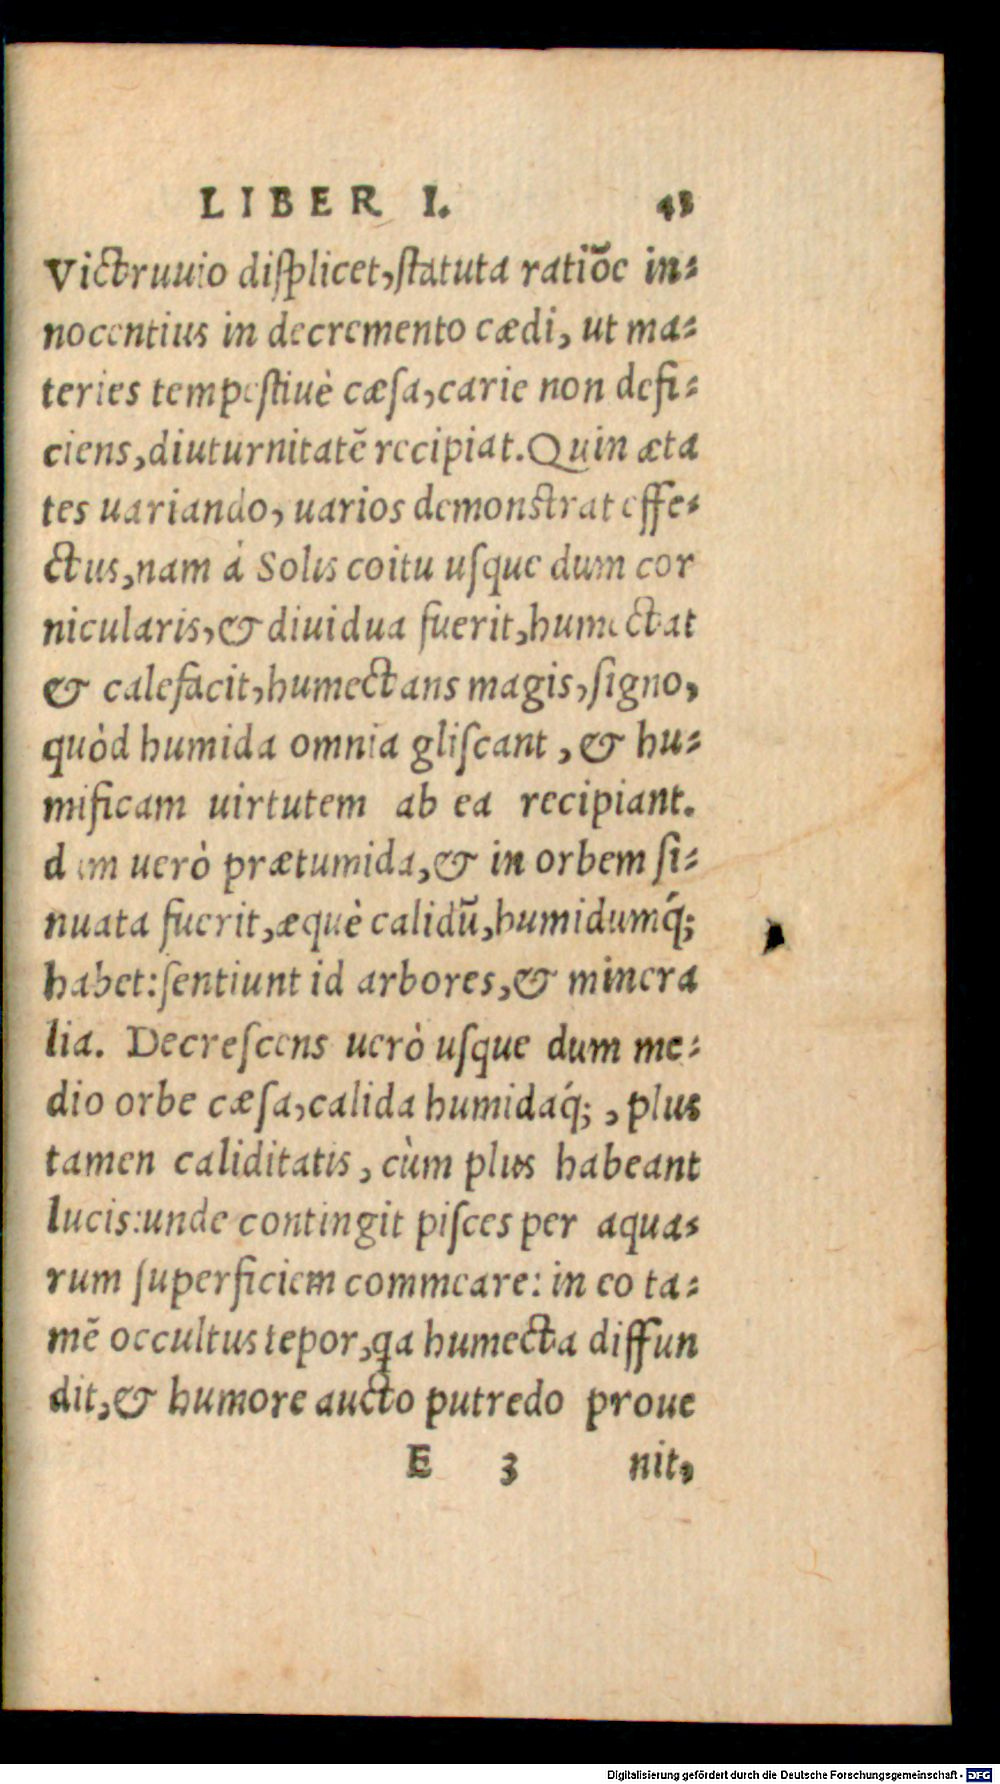 LIBER I. 43
Victruuio displicet,statuta ratiõe in-
nocentius in decremento cædi, ut ma-
teries tempestiuè cæsa,carie non defi-
ciens,diuturnitatẽ recipiat.Quin æta
tes uariando, uarios demonstrat effe-
ctus,nam á Solis coitu usque dum cor
nicularis,& diuidua fuerit,humectat
& calefacit,humectans magis,signo,
quòd humida omnia gliscant ,& hu-
mificam uirtutem ab ea recipiant.
dum uerò prætumida,& in orbem si-
nuata fuerit,æquè calidũ,humidumq́;
habet:sentiunt id arbores,& minera
lia. Decrescens uerò usque dum me-
dio orbe cæsa,calida humidaq́; , plus
tamen caliditatis , cùm plus habeant
lucis:unde contingit pisces per aqua-
rum superficiem commeare: in eo ta-
mẽ occultus tepor,qa humecta diffun
dit,& humore aucto putredo proue
E 3 nit,
Digitalisierung gefördert durch die Deutsche Forschungsgemeinschaft - DFG